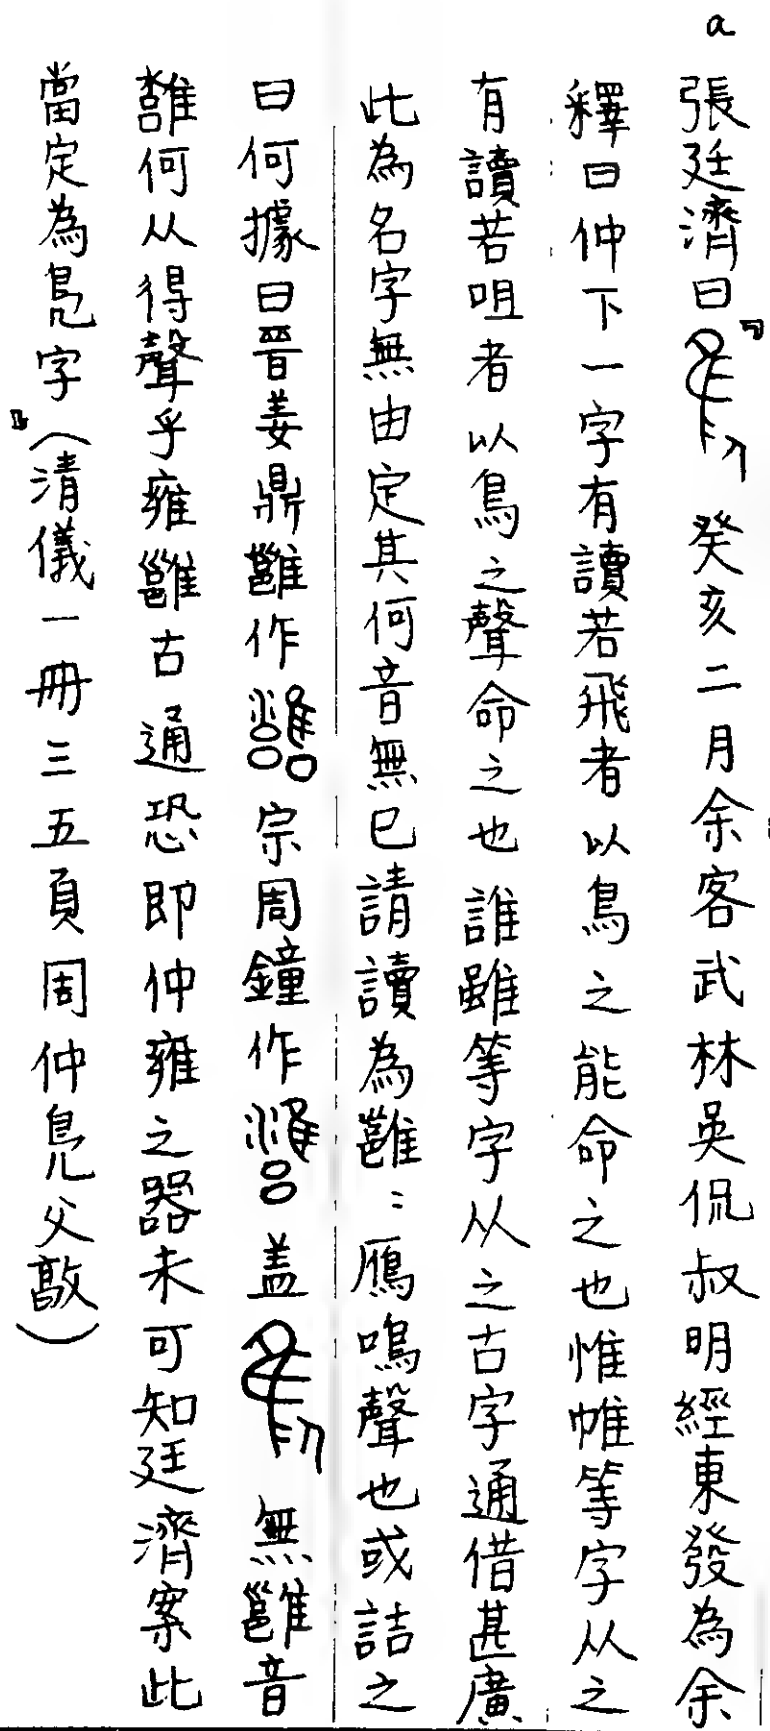 a
張廷濟曰『 癸亥二月余客武林吳侃叔明經東發為余
釋曰仲下一字有讀若飛者以鳥之能命之也惟帷等字从之
有讀若咀者以鳥之聲命之也誰雖等字从之古字通借甚廣
此為名字無由定其何音無已請讀為雝:鴈鳴聲也或詰之
曰何據曰晉姜鼎雝作 宗周鐘作 盖 無雝音
何从得聲乎雍雝古通恐即仲雍之器未可知廷濟案此
當定為鳧字』(清儀一冊三五頁周仲鳧父敦)